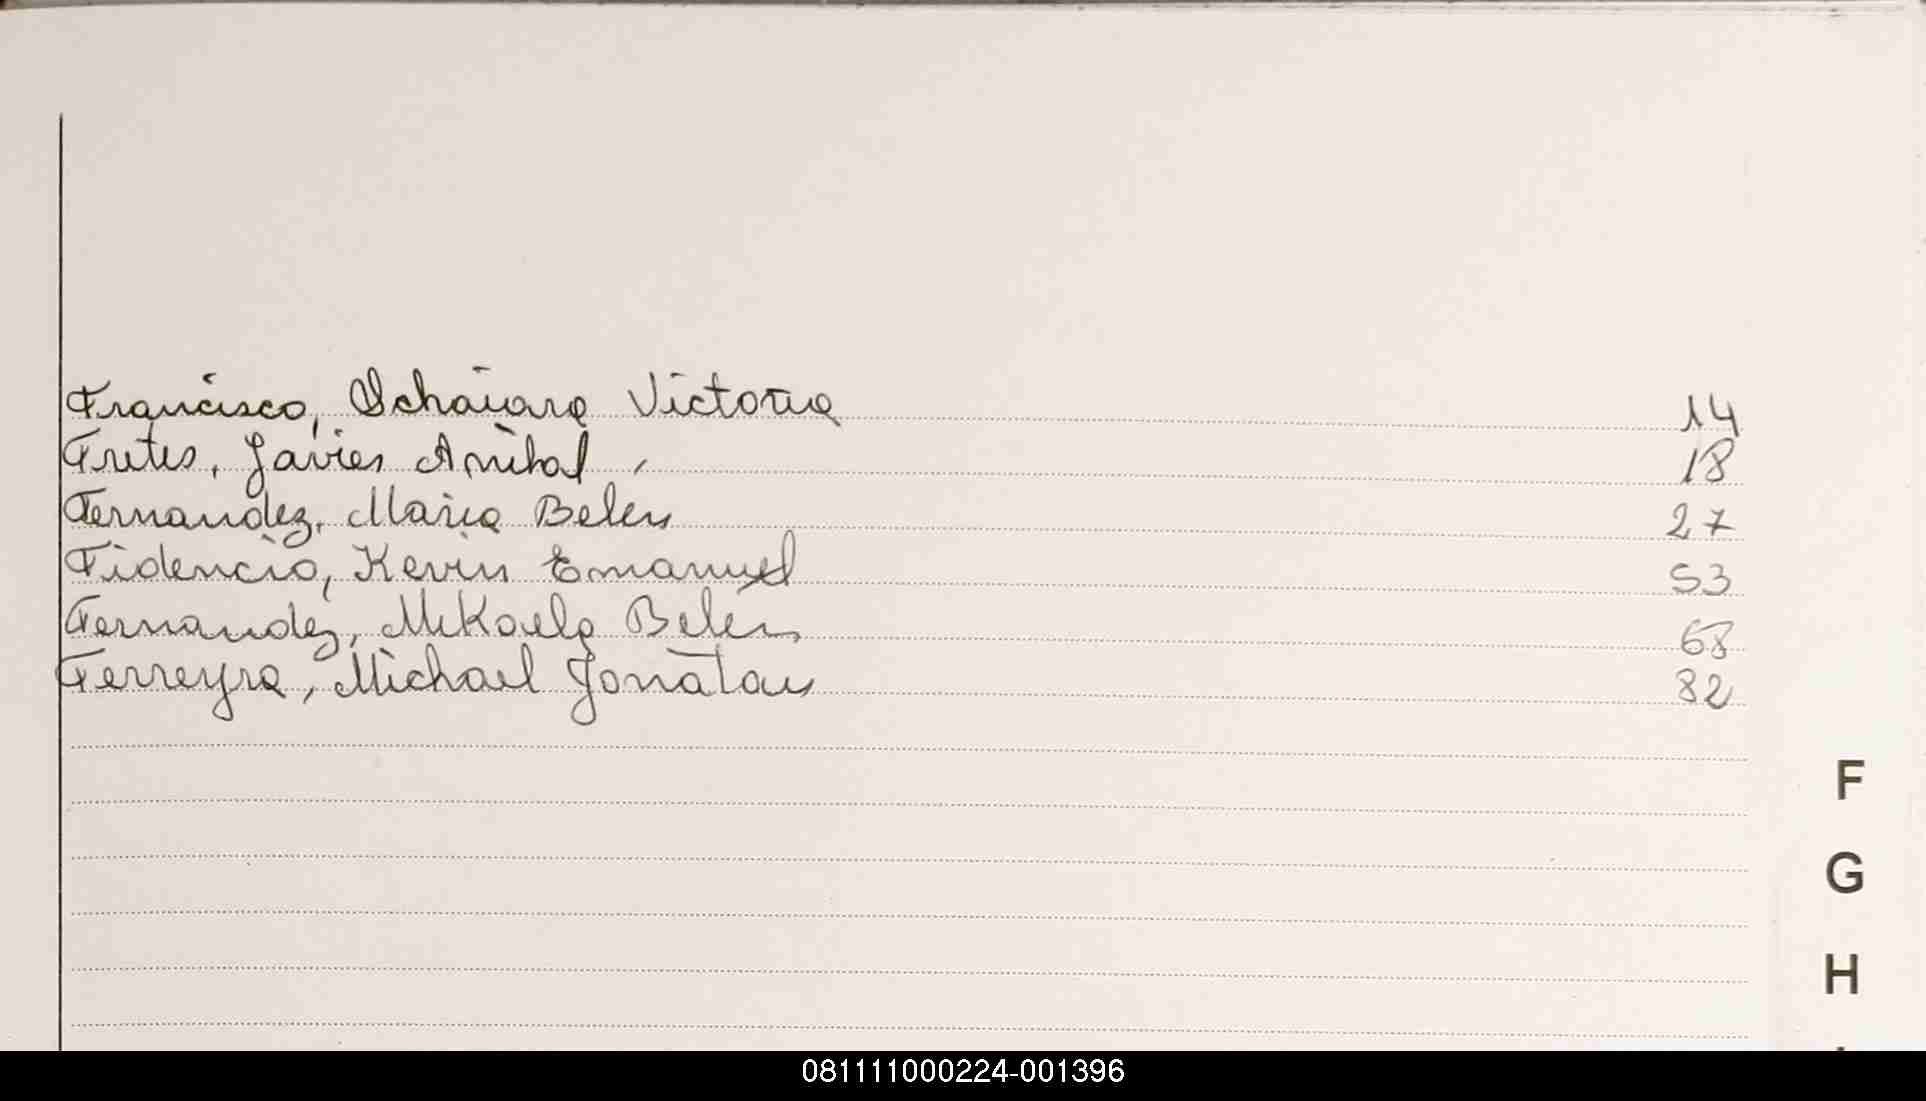 Francisco, Ochaiara Victoria 14
Fretes, Javier Anibal 18
Fernandez, Maria Belen 27
Fidencio, Kevin Emanuel 53
Fernandez, Mikaela Belén 68
Ferreyra, Michael Jonatan 82
F
G
H
081111000224-001396